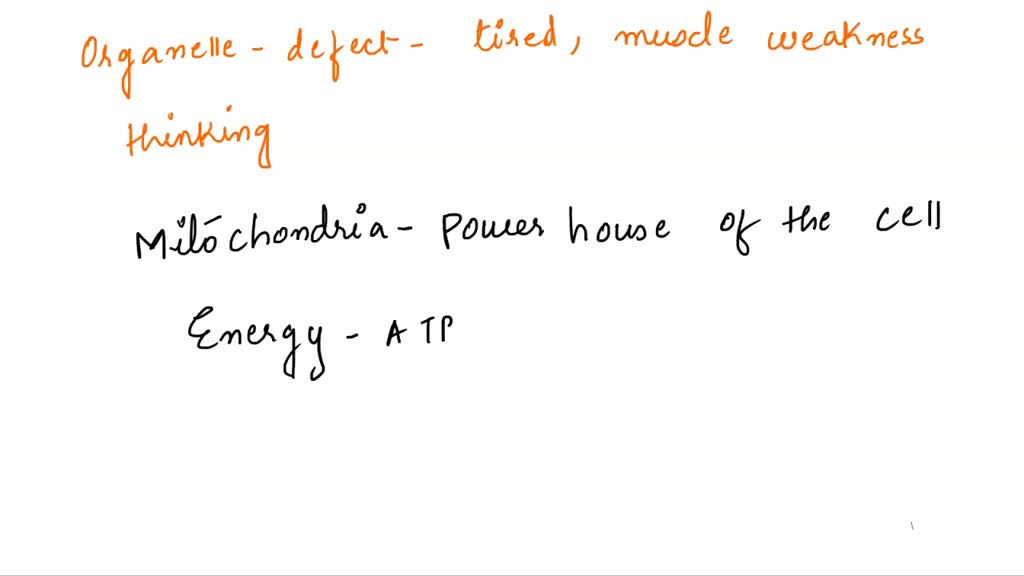 Organelle - defect - tired, muscle weakness
thinking
Mitochondria - Power house of the cell
Energy - ATP